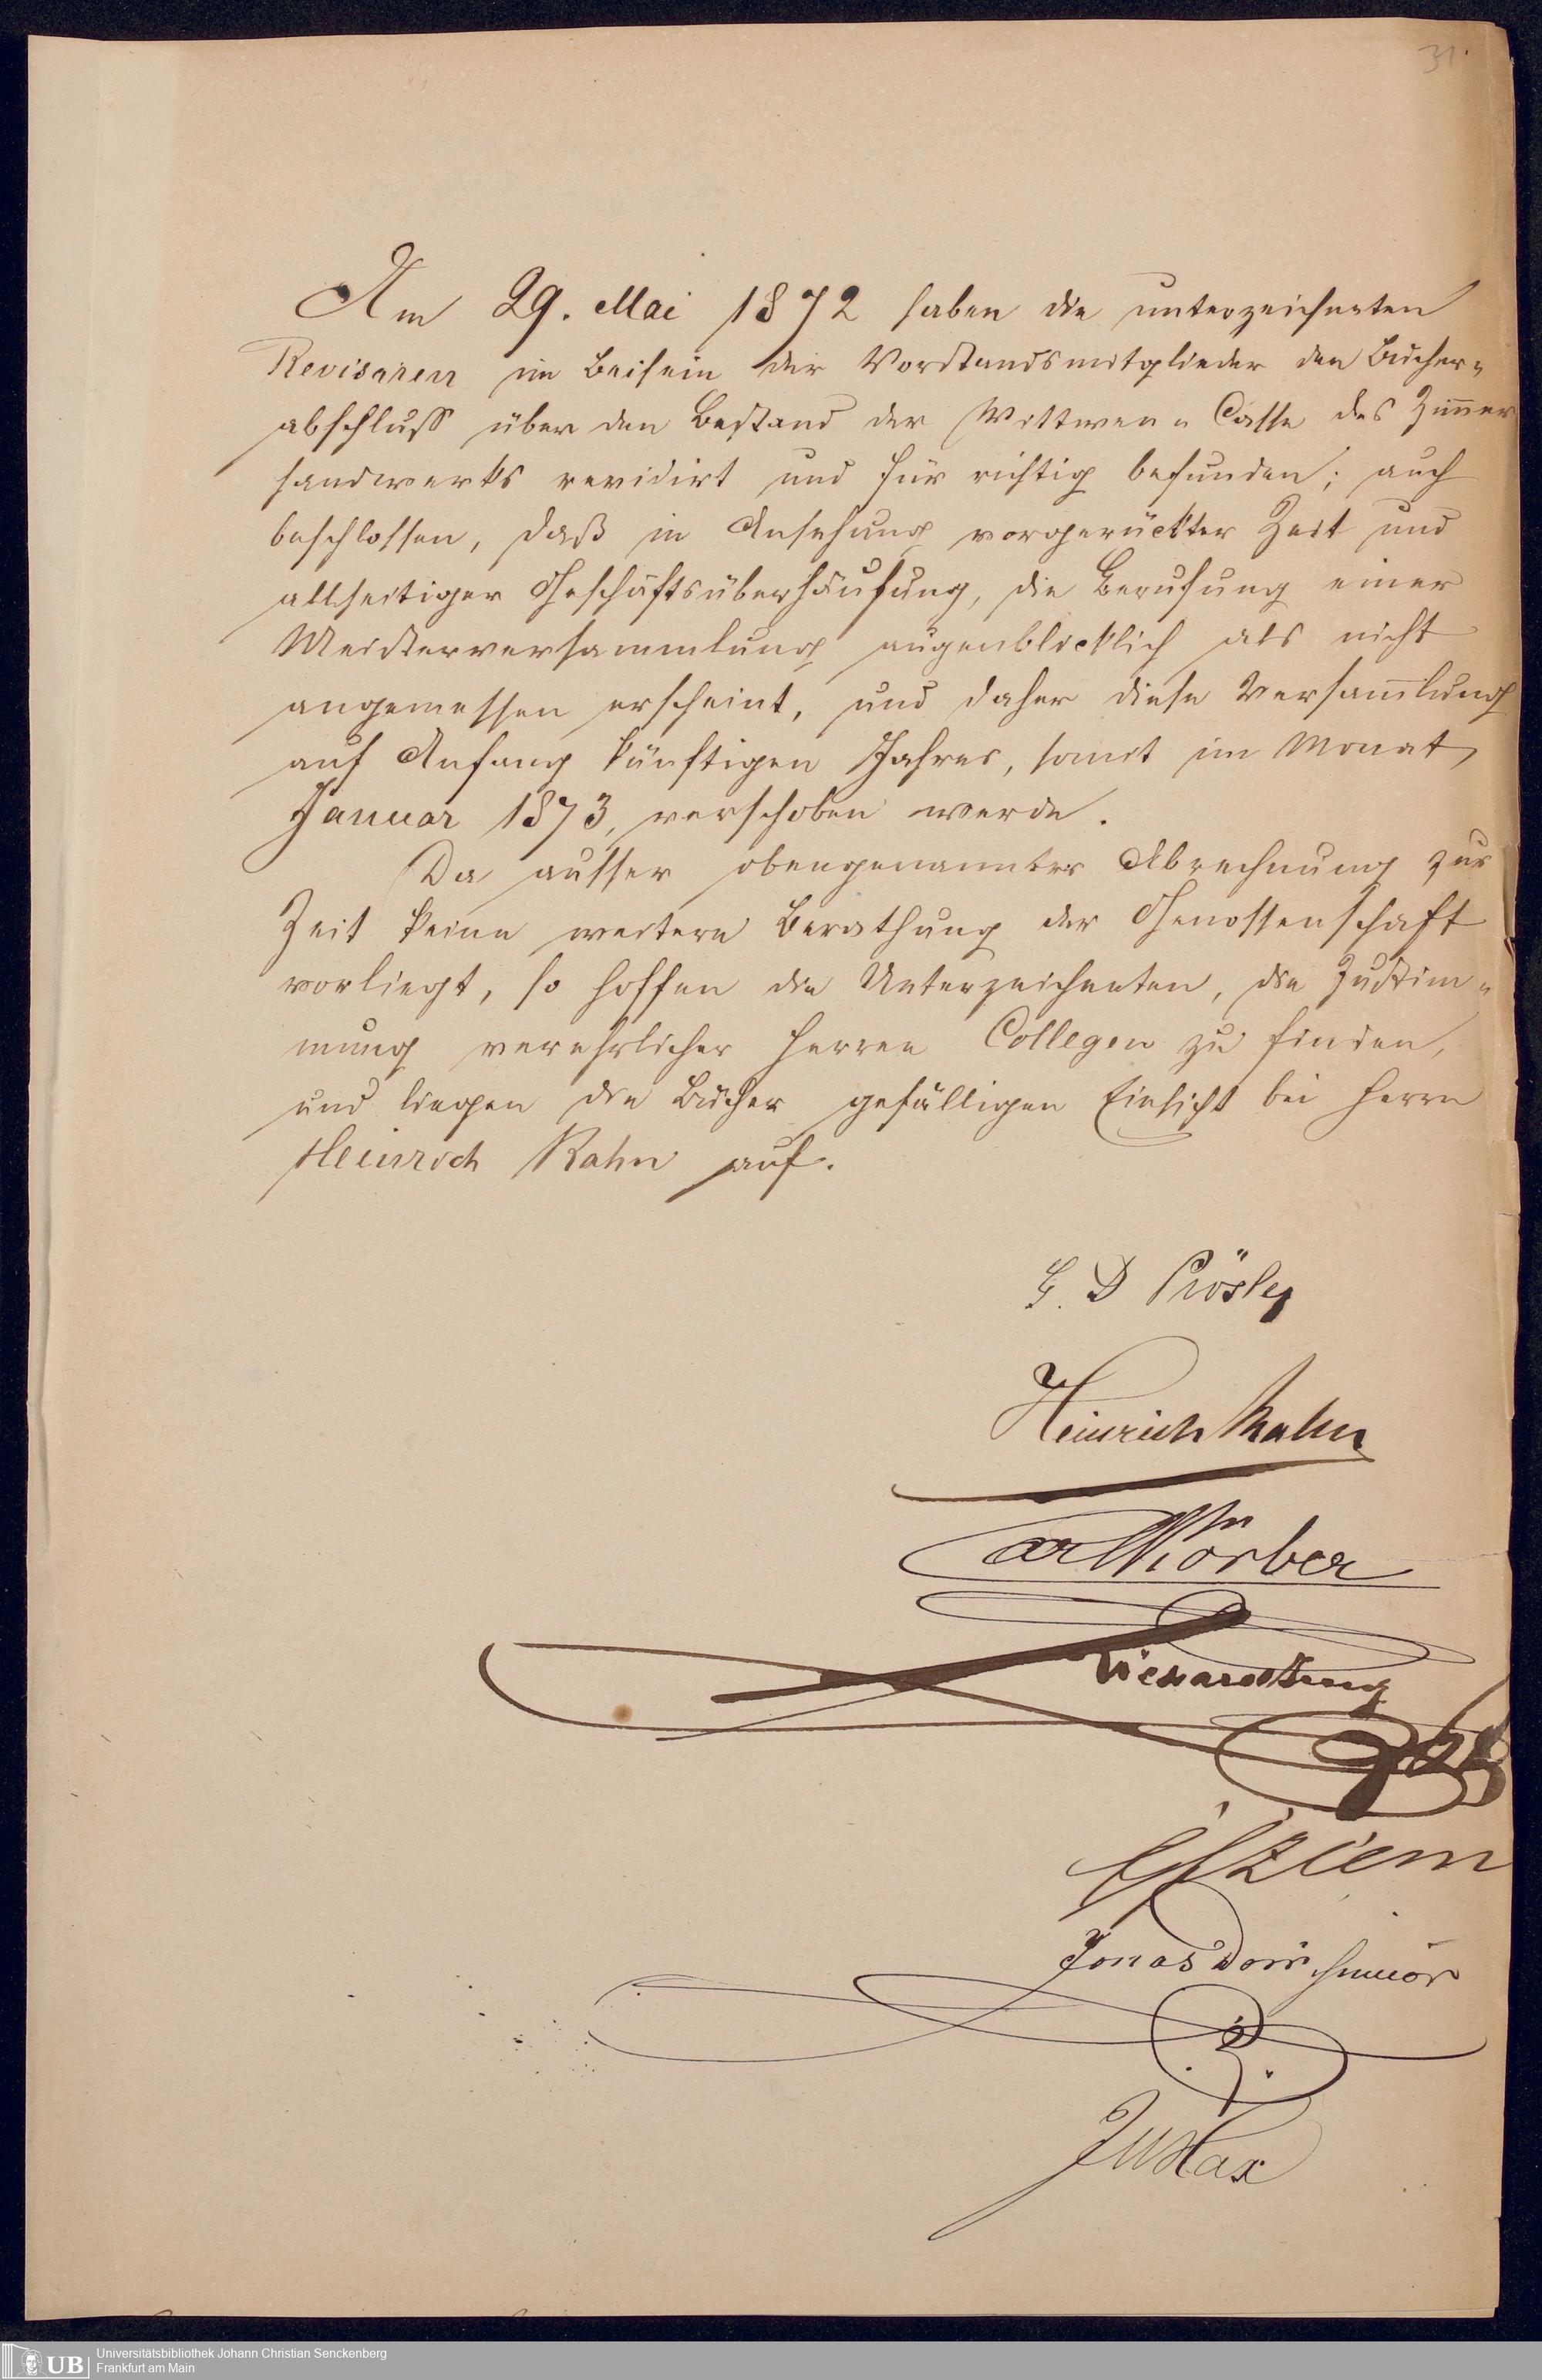 31.
Am 29. Mai 1872 haben die unterzeichneten
Revisoren im Beisein der Vorstandsmitglieder den Bücher-
abschluß über den Bestand der Wittwen-Casse des Zimmer
handwerks revidirt und für richtig befunden; auch
beschlossen, daß in Ansehung vorgerückter Zeit und
allseitiger Geschäftsüberhäufung, die Berufung einer
Meisterversammlung augenblicklich als nicht
angemessen erscheint, und daher diese Versam̄lung
auf Anfang künftigen Jahres, somit im Monat
Januar 1873, verschoben werde.
Da ausser obengenannter Abrechnung zur
Zeit keine weitere Berathung der Genossenschaft
vorliegt, so hoffen die Unterzeichneten, die Zustim-
mung verehrlicher Herren Collegen zu finden,
und liegen die Bücher gefälligen Einsicht bei Herrn
Heinrich Rahn auf.
Heinrich Rahn
Carl Körber
Jonas Dorr
UB
Universitätsbibliothek Johann Christian Senckenberg
Frankfurt am Main